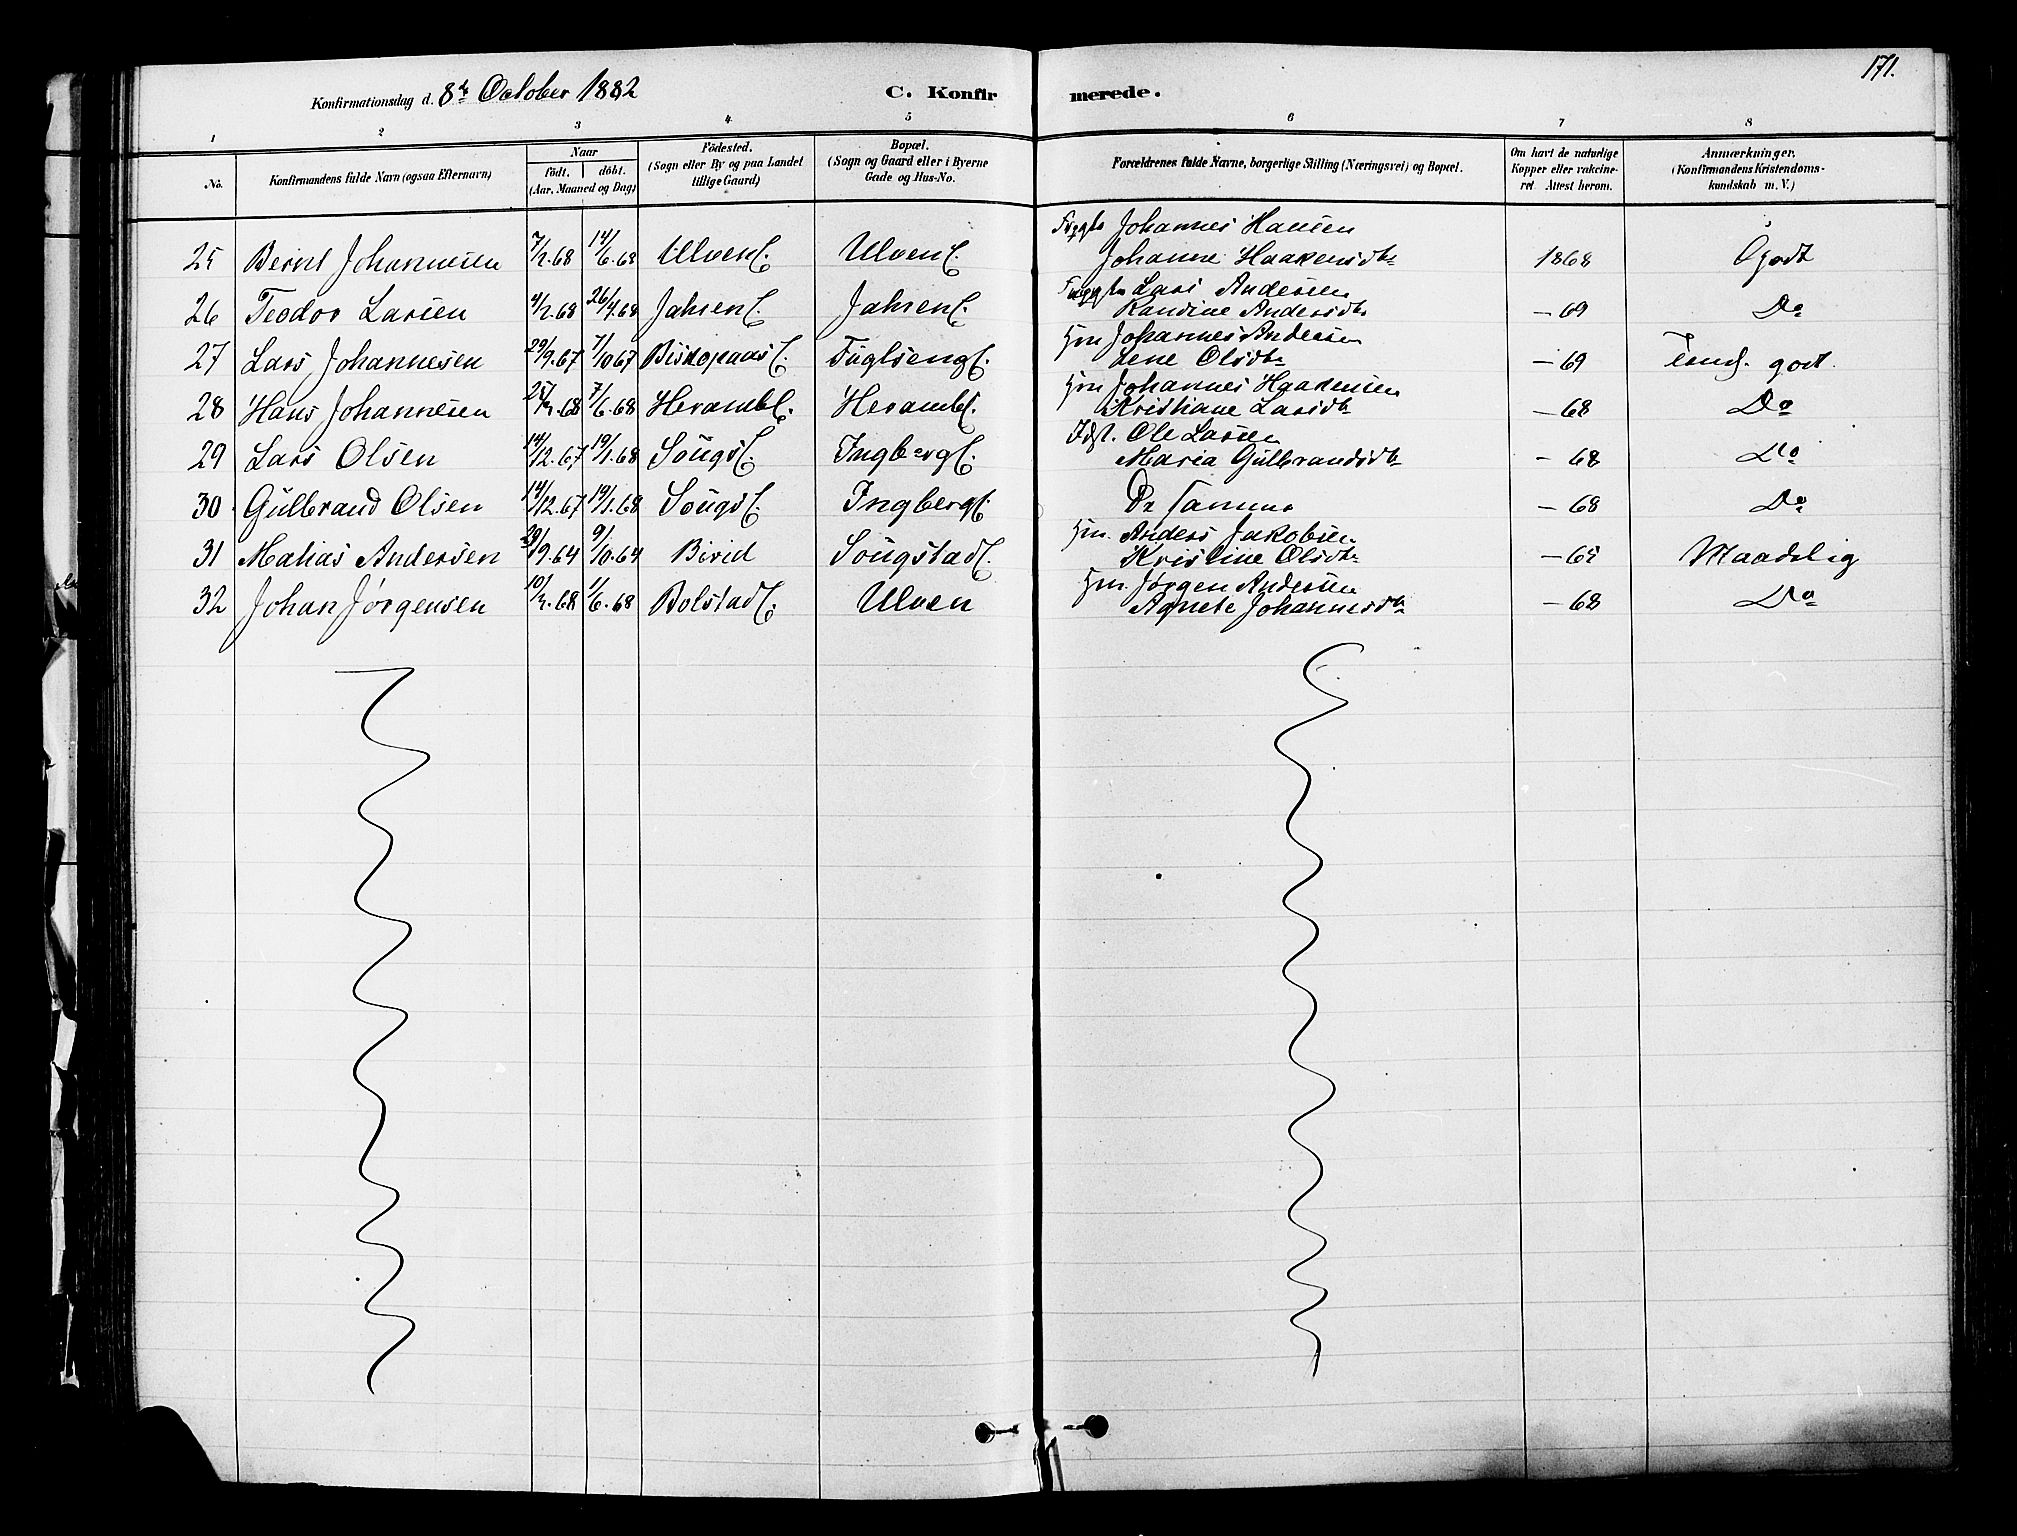 171.
Konfirmationsdag d. 8de October 1882 C. Konfirmerede.
1 2 3 4 5 6 7 8
No. Konfirmandens fulde Navn (ogsaa Efternavn) Naar født. døbt. (Aar, Maaned og Dag) Fødested. (Sogn eller By og paa Landet tillige Gaard) Bopæl. (Sogn og Gaard eller i Byerne Gade og Hus-No. Forældrenes fulde Navne, borgerlige Stilling (Næringsvei) og Bopæl. Om havt de naturlige Kopper eller vakcineret. Attest herom. Anmærkninger. (Konfirmandens Kristendomskundskab m. V.)
Johannes Hansen
25 Bernt Johannesen 7/2.68 14/6.68 UlvenE. UlvenE. Johanne Haakensdtr 1868 Godt
Lars Andersen
26 Teodor Larsen 4/2.68 26/4.68 JahrenE. JahrenE. Randine Andersdtr — 69 Do
Hm Johannes Andersen
27 Lars Johannesen 29/9.67 7/10.67 FuglsengE. Lene Olsdtr — 69 Temf. godt.
Hm Johannes Haakensen
28 Hans Johannesen 25/3.68 7/6.68 HerambE. HerambE. Kristiane Larsdtr — 68 Do
Idst. Ole Larsen
29 Lars Olsen 14/12.67 19/1.68 SougsE. IngbergE. Maria Gulbrandsdtr — 68 Do
30 Gulbrand Olsen 14/12.67 19/1.68 SougsE. IngbergE. De Samme — 68 Do
Hm. Anders Jakobsen
31 Matias Andersen 29/9.64 9/10.64 Birid SougstadE. Kristine Olsdtr — 65 Maadelig
Hm. Jørgen Andersen
32 Johan Jørgensen 10/3.68 1/6.68 BolstadE. Ulven Agnete Johannesdtr — 68 Do